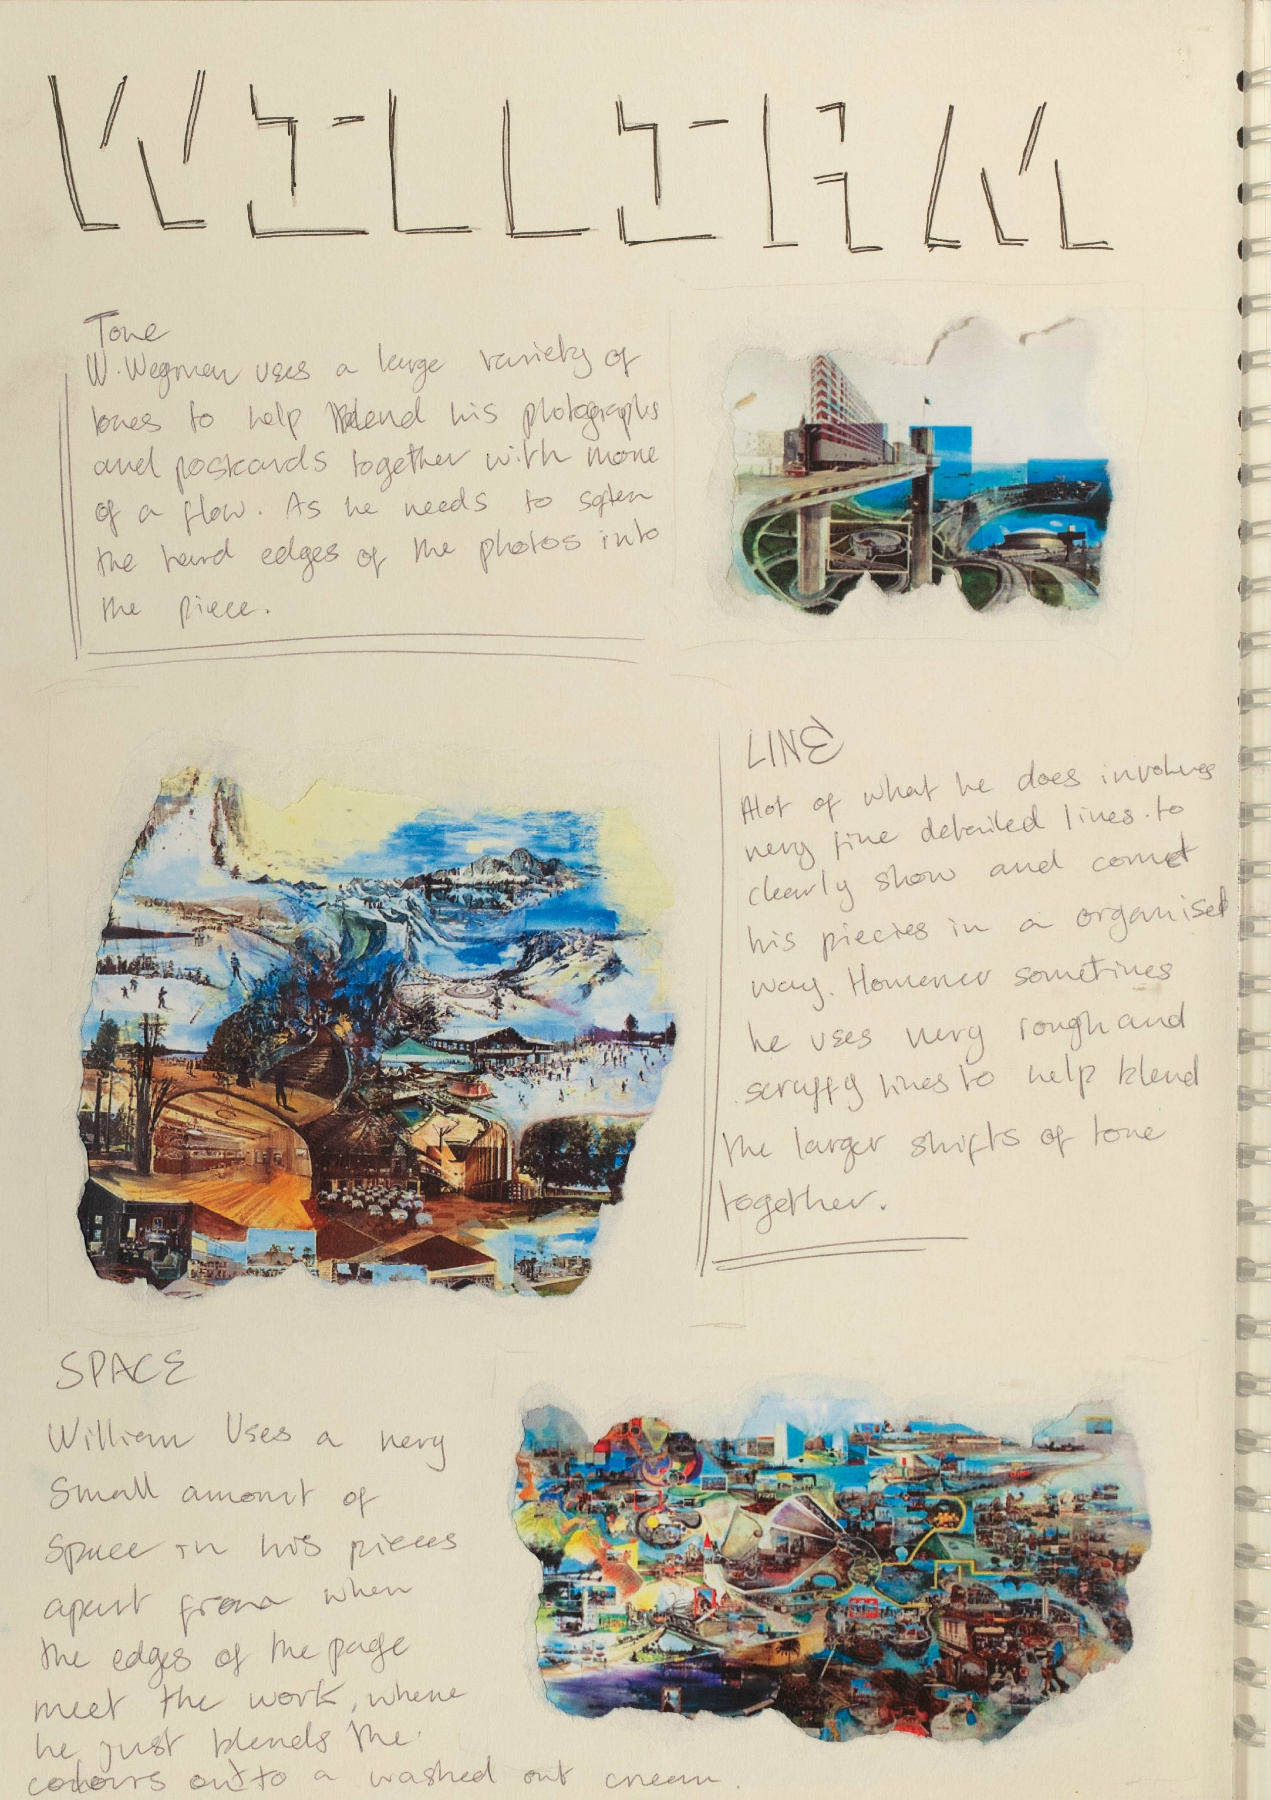 WILLIAM
Tone
W. Wegman uses a large variety of
tones to help blend his photographs
and postcards together with more
of a flow. As he needs to soften
the hard edges of the photos into
the piece.
LINE
Alot of what he does involves
very fine detailed lines. to
clearly show and
his piecies in a organised
way. However sometimes
he uses very rough and
scruffy lines to help blend
the larger shifts of tone
together.
SPACE
William Uses a very
Small amount of
Space in his pieces
apart from when
the edges of the page
meet the work, where
he just blends the
colours out to a washed out cream.